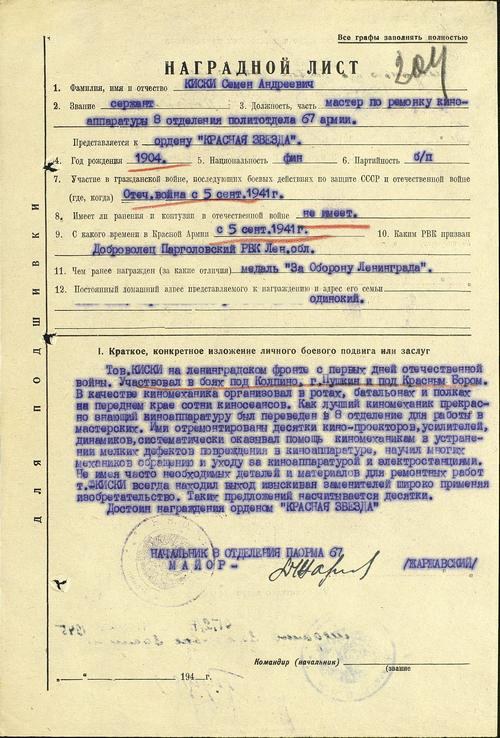 Все графы заполнять полностью
204
НАГРАДНОЙ ЛИСТ
1. Фамилия, имя и отчество КИСКИ Семен Андреевич
2. Звание сержант 3. Должность, часть мастер по ремонку кино-
аппаратуры 8 отделения политотдела 67 армии.
Представляется к ордену "КРАСНАЯ ЗВЕЗДА".
4. Год рождения 1904. 5. Национальность фин 6. Партийность б/п
7. Участие в гражданской войне, последующих боевых действиях по защите СССР и отечественной войне
(где, когда) Отеч.война с 5 сент.1941г.
8. Имеет ли ранения и контузии в отечественной войне не имеет.
9. С какого времени в Красной Армии с 5 сент.1941г. 10. Каким РВК призван
Доброволец Парголовский РВК Лен.обл.
11. Чем ранее награжден (за какие отличия) медаль "За Оборону Ленинграда".
12. Постоянный домашний адрес представляемого к награждению и адрес его семьи
одинокий.
ДЛЯ ПОДШИВКИ
I. Краткое, конкретное изложение личного боевого подвига или заслуг
Тов.КИСКИ на ленинградском фронте с первых дней отечественной
войны. Участвовал в боях под Колпино, г.Пушкин и под Красным Бором.
В качестве киномеханика организовал в ротах, батальонах и полках
на переднем крае сотни киносеансов. Как лучший киномеханик прекрас-
но знающий киноаппаратуру был переведен в 8 отделение для работы в
мастерских. Ими отремонтированы десятки кино-проекторов,усилителей,
динамиков,систематически оказывал помощь киномеханикам в устране-
нии мелких дефектов повреждения в киноаппаратуре, научил многих
механиков обращению и уходу за киноаппаратурой и электростанциями.
Не имея часто необходимых деталей и материалов для ремонтных работ
т.КИСКИ всегда находил выход изыскивая заменителей широко применяя
изобретательство. Таких предложений насчитывается десятки.
Достоин награждения орденом "КРАСНАЯ ЗВЕЗДА"
НАЧАЛЬНИК 8 ОТДЕЛЕНИЯ ПАОРМА 67
МАЙОР - /ЖАРКАВСКИЙ/
Командир (начальник)
(звание
"—" 194 г.